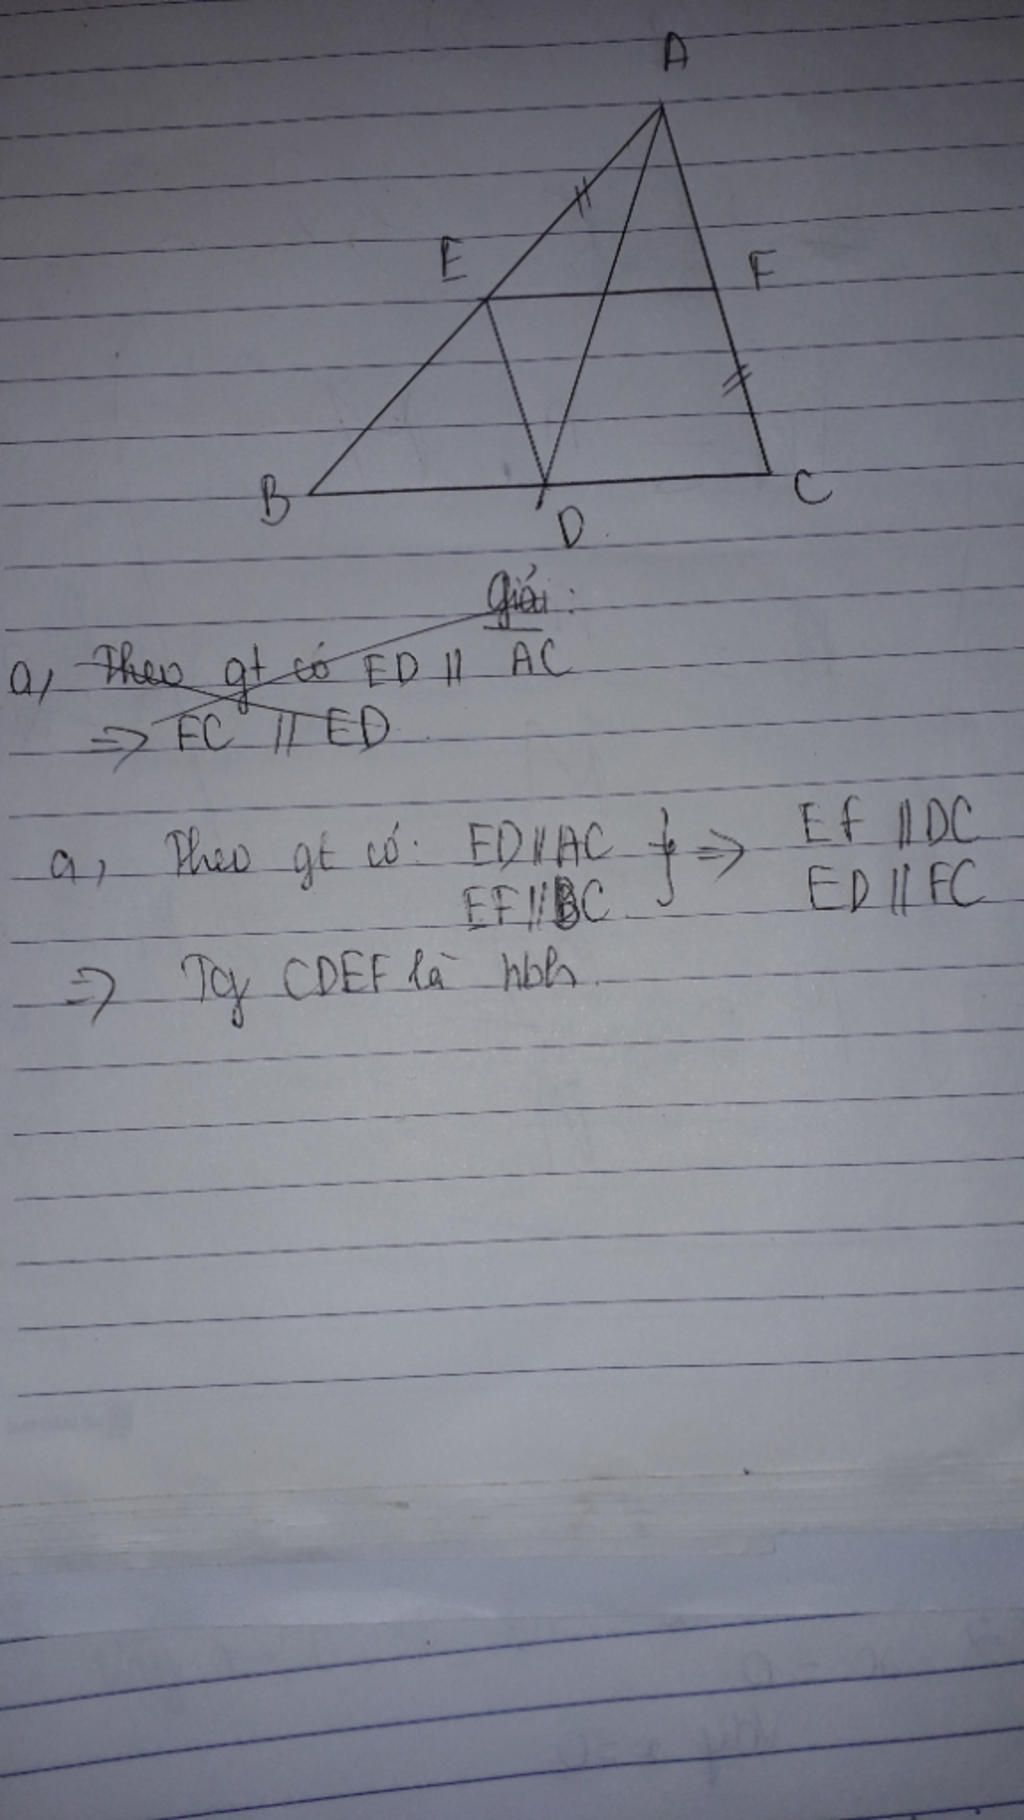 A
E
F
B
D
C
Giải:
a, Theo gt có ED // AC
=> FC // ED
a, Theo gt có: ED // AC } => EF // DC
EF // BC ED // FC
=> Tg CDEF là hbh